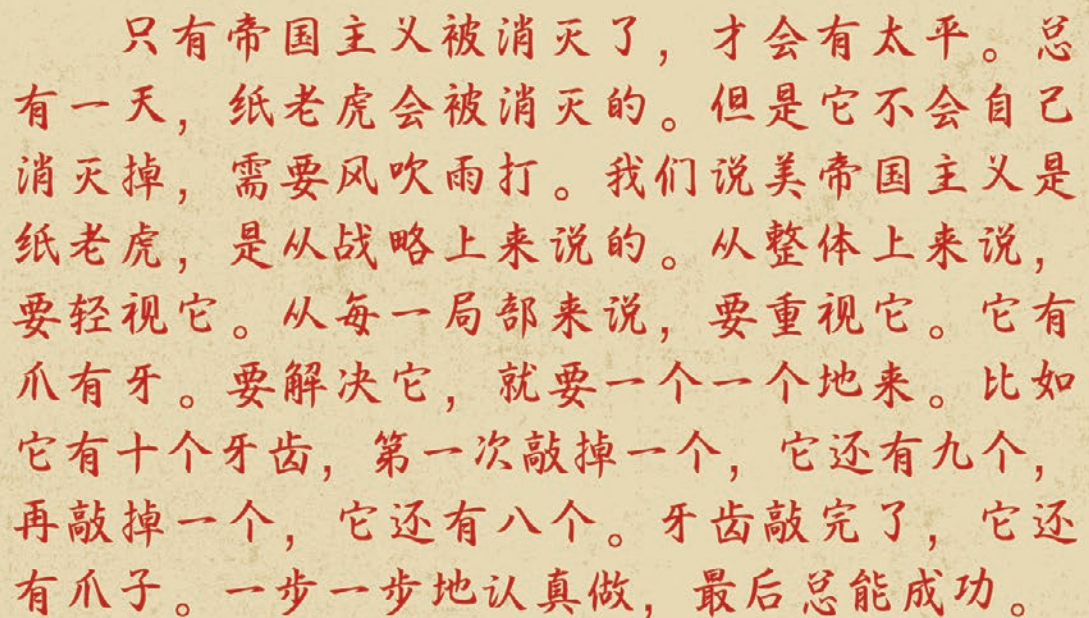 只有帝国主义被消灭了，才会有太平。总
有一天，纸老虎会被消灭的。但是它不会自己
消灭掉，需要风吹雨打。我们说美帝国主义是
纸老虎，是从战略上来说的。从整体上来说，
要轻视它。从每一局部来说，要重视它。它有
爪有牙。要解决它，就要一个一个地来。比如
它有十个牙齿，第一次敲掉一个，它还有九个，
再敲掉一个，它还有八个。牙齿敲完了，它还
有爪子。一步一步地认真做，最后总能成功。